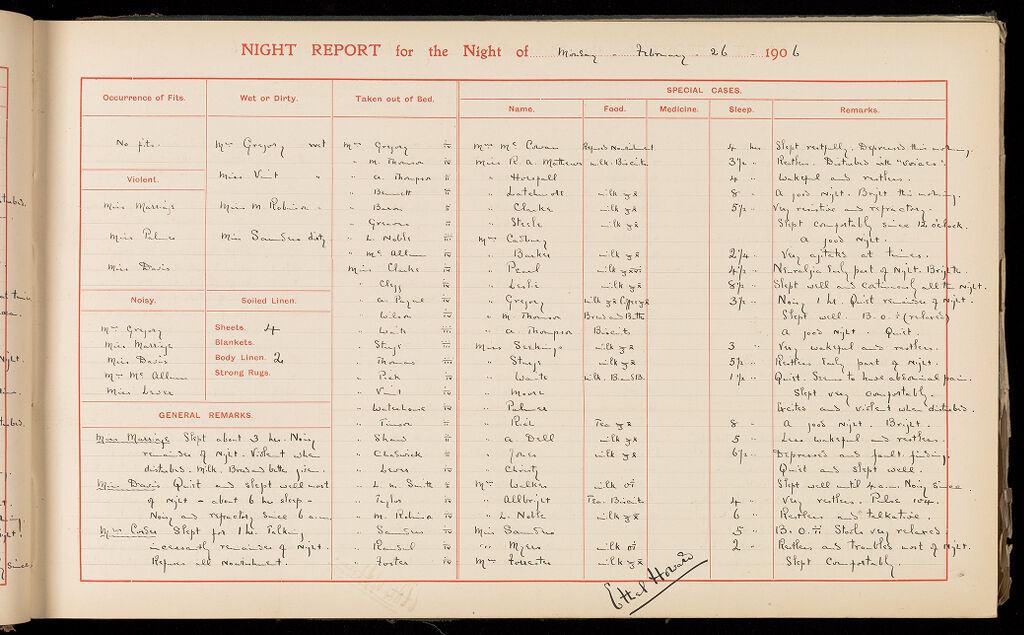 NIGHT REPORT for the Night of Monday - February - 26 - 1906
Occurrence of Fits.
No fits.
Violent.
Miss Marriage
Miss Palmer
Miss Davis
Noisy.
Mrs Gregory
Miss Marriage
Miss Davis
Mrs Mc Allum
Miss Lewer
Wet or Dirty.
Mrs Gregory wet
Miss Vint "
Miss M. Robinson "
Miss Saunders dirty
Soiled Linen.
Sheets. 4
Blankets.
Body Linen. 2
Strong Rugs.
GENERAL REMARKS.
Miss Marriage Slept about 3 hrs. Noisy
remainder of night. Violent when
disturbed. Milk. Bread and butter given.
Miss Davis Quiet and slept well most
of night - about 6 hrs sleep -
Noisy and refractory since 6 a.m.
Slept for 1 hr. Talking
incessantly remainder of night.
Refuses all nourishment.
Taken out of Bed.
Mrs Gregory
" M. Thomson
" A. Thompson
" Bennett
" Bacon
" Greaves
" L. Noble
" Mc Allum
Miss Clarke
" Clegg
" A. Payne
" Wilson
" Waite
" Stays
" Thomas
" Vint
" Waterhouse
" Shaw
" Chadwick
" Lewer
" L. M. Smith
" Taylor
" M. Robinson
" Saunders
" Foster
SPECIAL CASES.
Name. Food. Medicine. Sleep. Remarks.
Mrs Mc Cowan Refused Nourishment 4 hrs Slept restfully. Depressed this morning.
Miss R. A. Mathews milk. Biscuits 3½ " Restless. Disturbed with "voices".
" Horsfall 4 " Wakeful and restless.
" milk 8 " A good night. Bright this morning.
" Clarke milk 5½ " Very resistive and refractory.
" Steele milk Slept comfortably since 12 o'clock.
Mrs Cadbury A good night.
" Barker milk 2¼ " Very agitated at times.
" Pearl milk 4½ " Neuralgia early part of night.
" Leslie milk 8½ " Slept well and continuously all the night.
" Gregory milk 3½ " Noisy 1 hr. Quiet remainder of night.
" M. Thomson Bread and Butter Slept well. B.O. (relaxed)
" A. Thompson Biscuits A good night. Quiet.
Miss Seekings milk 3 " Very wakeful and restless.
" Stays milk 5½ " Restless early part of night.
" Waite milk. 1½ " Quiet. Seems to have abdominal pain.
" Moore Slept very comfortably.
" Palmer Excited and violent when disturbed.
" Tea 8 " A good night. Bright.
" A. Dell milk 5 " Less wakeful and restless.
" Jones milk 6½ " Depressed and fault finding.
" Christy Quiet and slept well.
Mrs Walker milk Slept well until 4 a.m. Noisy since.
" Allbright Tea Biscuits 4 " Very restless. Pulse 104.
" L. Noble milk 6 " Restless and talkative.
Miss Saunders 5 " B.O. Stools very relaxed
" Myers milk 2 " Restless and troubled most of night.
Mrs Forester milk Slept comfortably.
Ethel Howard